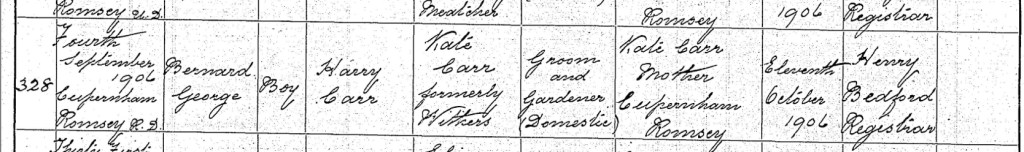 Romsey U.D. Meatcher Romsey 1906 Registrar
328
Fourth
September
1906
Cupernham
Romsey R.D.
Bernard
George
Boy
Harry
Carr
Kate
Carr
formerly
Withers
Groom
and
Gardener
(Domestic)
Kate Carr
Mother
Cupernham
Romsey
Eleventh
October
1906
Henry
Bedford
Registrar
Thirty First